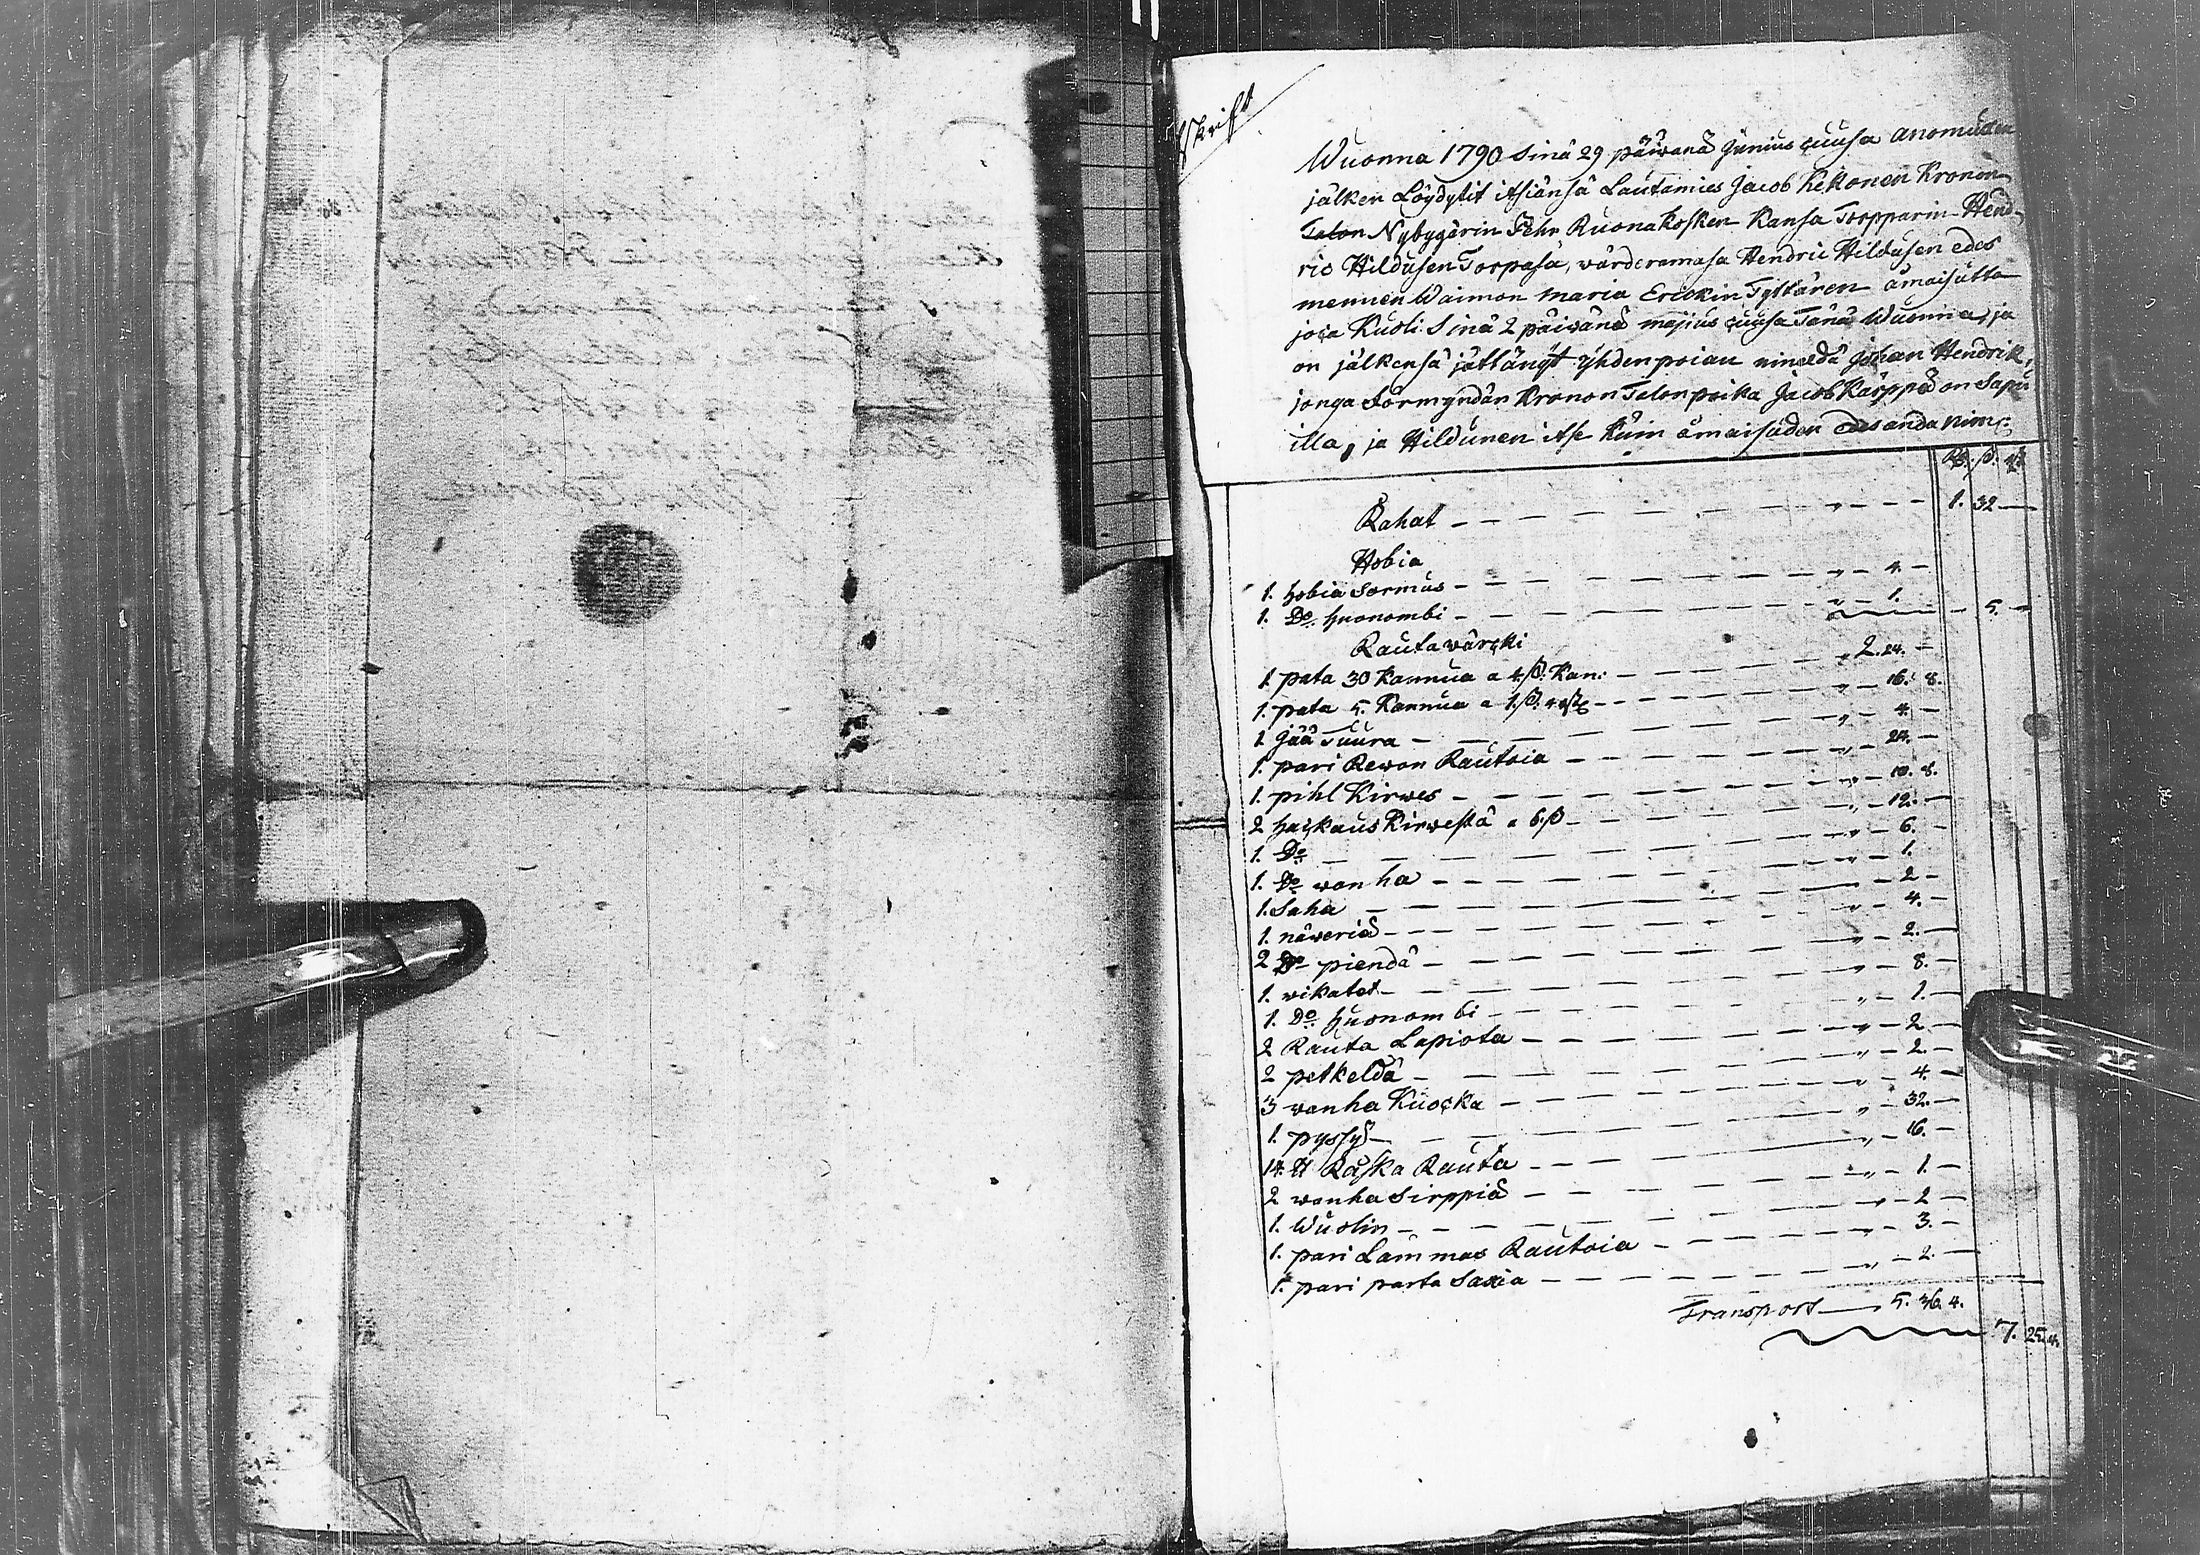 Wuonna 1790 Sinä 29 päiwänä Junius cuusa anomuxen
jälken Löydytit itsiänsä Lautamies Jacob Kekonen Kronon
Talon Nybygärin Pehr Ruonakosken Kansa Torpparin Hend-
ric Hildusen Torpasa, wärderamasa Hendric Hildusen edes
mennen Waimon Maria Erickin Tyttären omaisutta
joca Kuoli Sinä 2 päiwänä majius cuusa Tänä Wuonna, ja
on jälkensä jättänyt yhden poian nimeldä Johan Hendrik,
jonga Förmyndäri Kronon Talonpoika Jacob Karppä on Sapu
illa, ja Hildunen itse Kuin omaisuden edesanda nim:
Rd. ß. rs
Rahat — — — " — — 1. 32 —
Hobia
1. hobia Sormus — — — " — 4. —
1. Do. huonombi — — — " — 1. — 5. —
Rautawärcki
1. pata 30 Kannua a 4 ß. Kan: — — 2. 24. —
1. pata 5. Kannua a 1 ß. 4 rst — — " — 16. 8.
1 Jää Tuura — — " — 4. —
1. pari Rewon Rautoia — — " — 24. —
1. pihl Kirwes — — " — 10. 8.
2 haskaus Kirwestä a 6 ß — — " — 12. —
1. Do — — " — 6. —
1. Do wanha — — " — 1. —
1. Saha — — " — 2 —
1. näweriä — — " — 4. —
2 Do piendä — — " — 2. —
1. wikatet — — " — 8. —
1. Do huonombi — — " — 1. —
2 Rauta Lapiota — — " — 2 —
2 petkeldä — — " — 2. —
3 wanha Kuocka — — " — 4. —
1. pyssyä — — " — 32. —
14. ℔ Raska Rauta — — " — 16. —
2 wanha Sirppiä — — " — 1. —
1. Wuolin — — " — 2 —
1. pari Lammas Rautoia — — " — 3. —
1. pari parta Saxia — — " — 2. —
Transport — 5. 36. 4.
7. 25. 4.